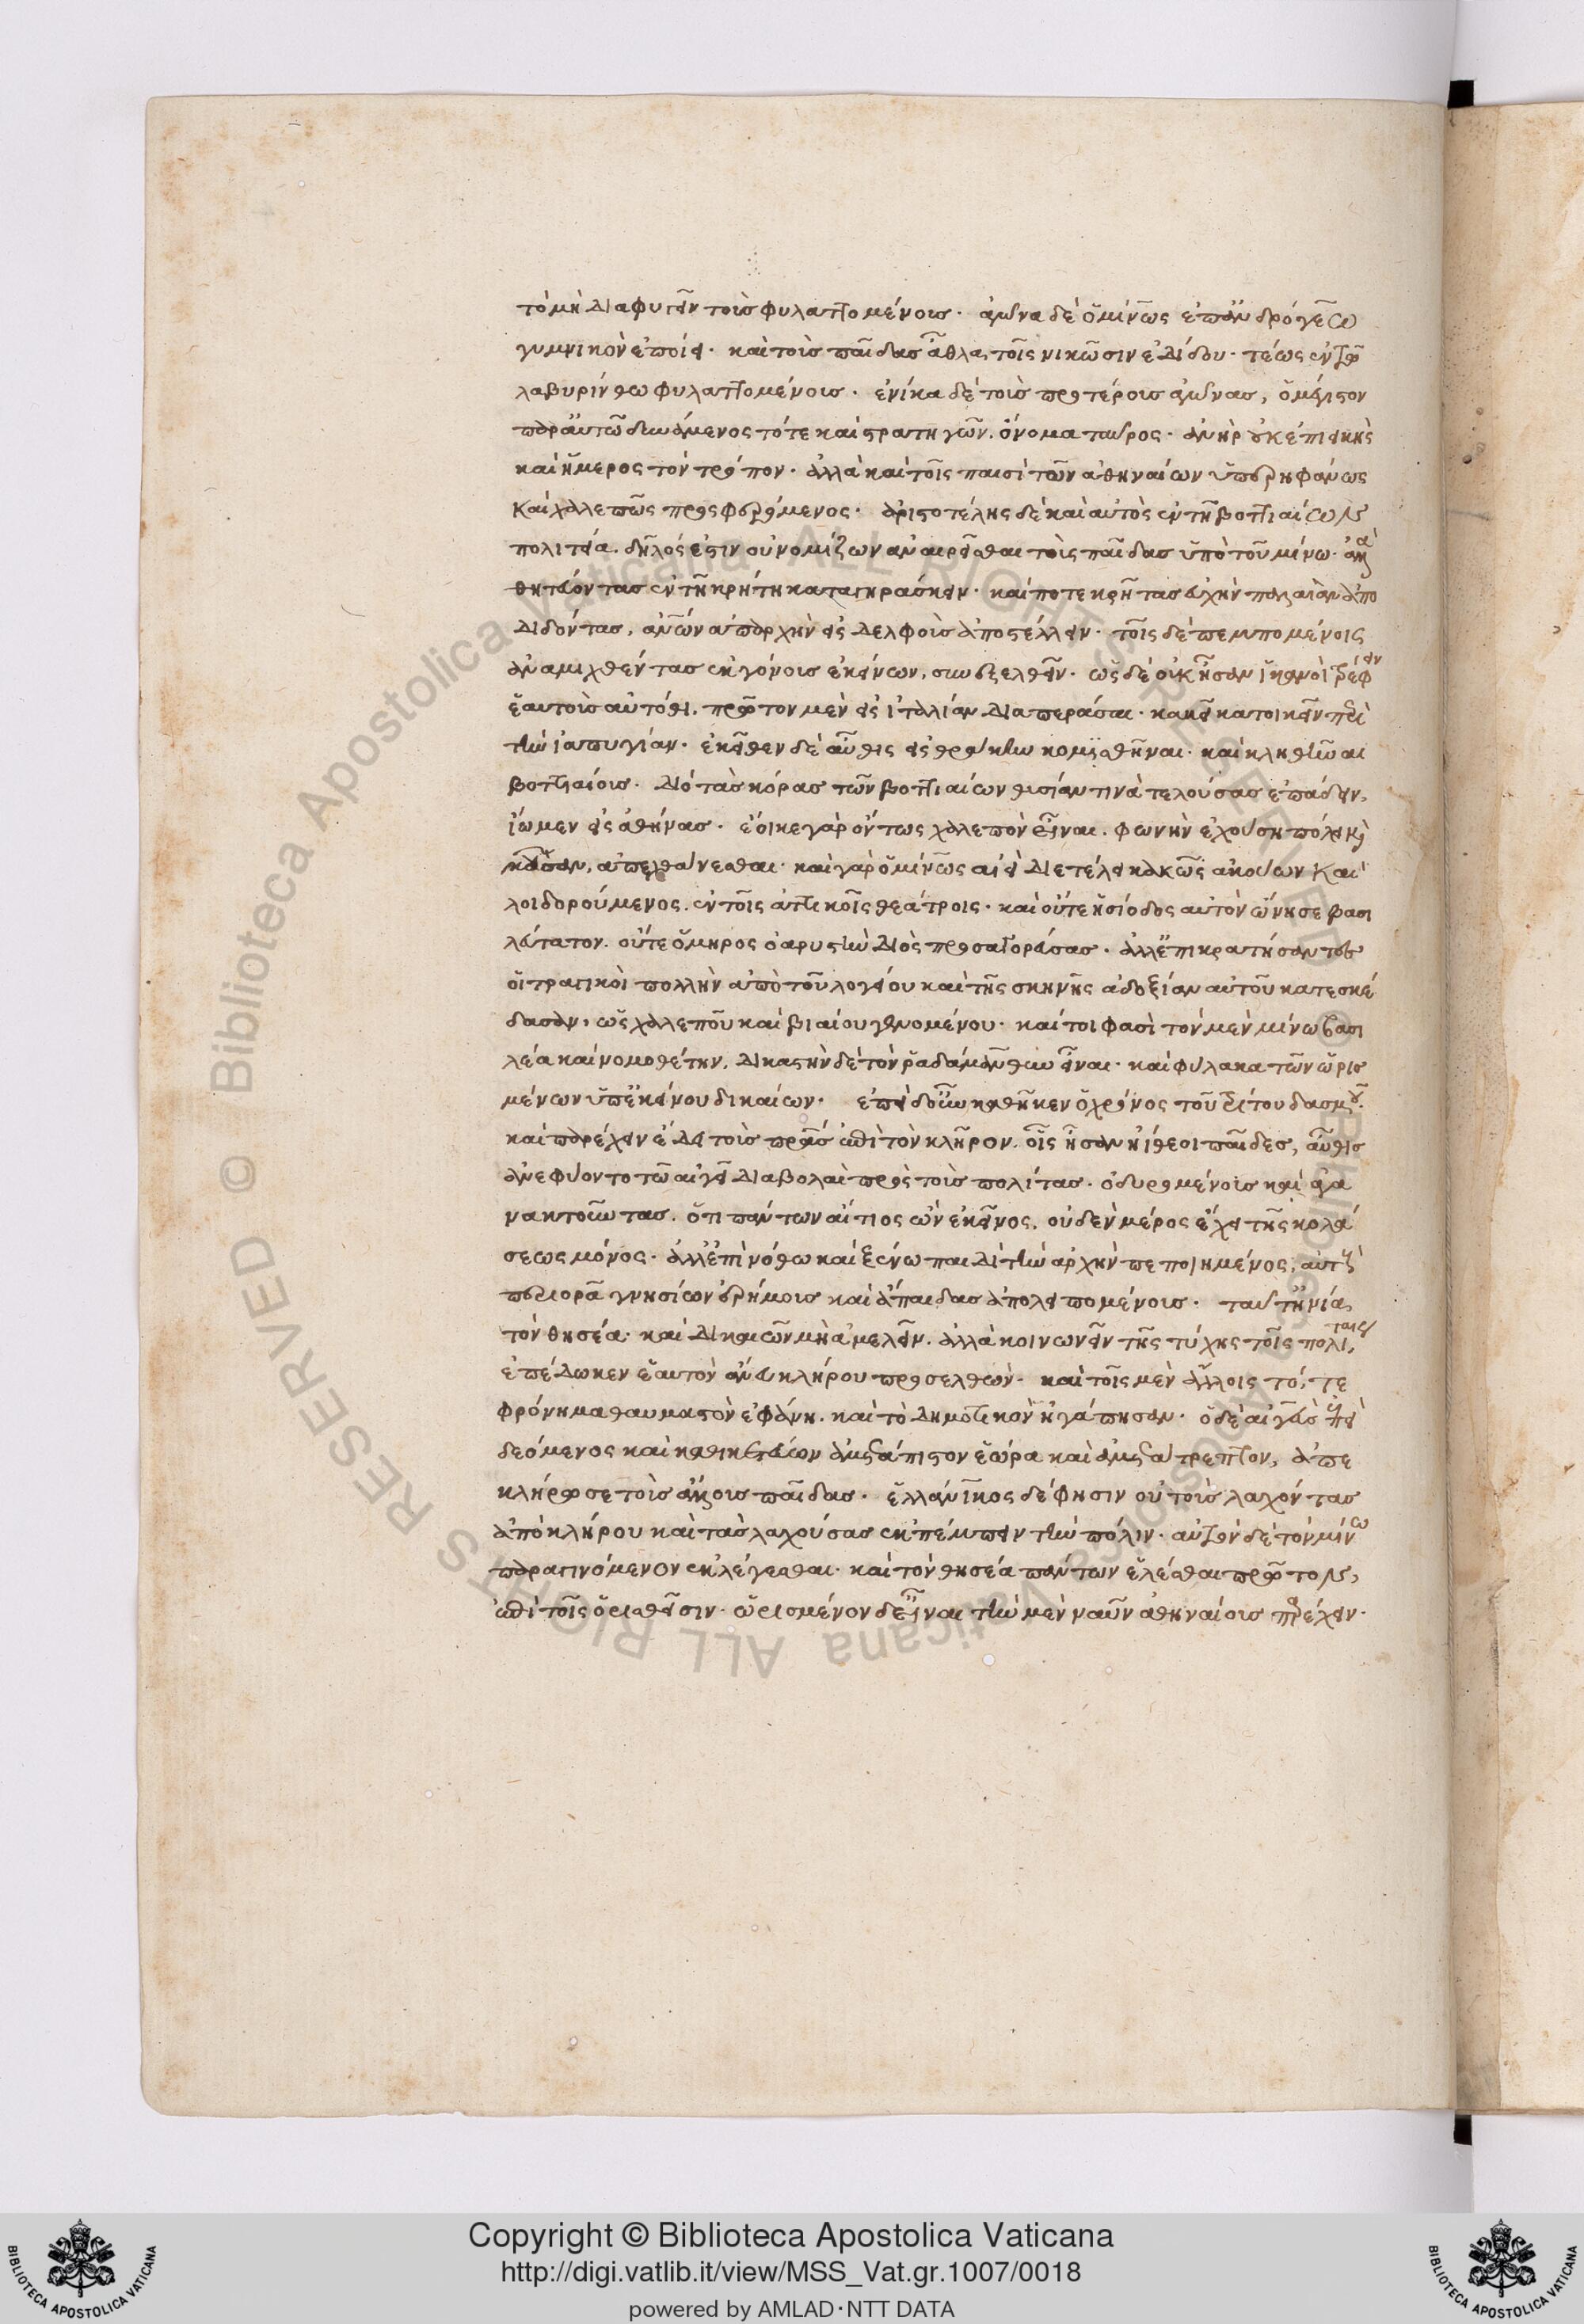 τὸ μὴ διαφυγεῖν τοὺς φυλαττομένους. ἀγῶνα δὲ ὁ μίνως ἐπ' ἀνδρόγεῳ
γυμνικὸν ἐποίει. καὶ τοὺς παῖδας ἆθλα τοῖς νικῶσιν ἐδίδου. τέως ἐν τῷ
λαβυρίνθω φυλαττομένους. ἐνίκα δὲ τοὺς προτέρους ἀγῶνας, ὁ μέγιστον
παρ' αὐτῶ δυνάμενος τότε καὶ στρατηγῶν. ὄνομα ταῦρος. ἀνὴρ οὐκ ἐπιεικὴς
καὶ ἥμερος τὸν τρόπον. ἀλλὰ καὶ τοῖς παισὶ τῶν ἀθηναίων ὑπερηφάνως
καὶ χαλεπῶς προσφερόμενος. ἀριστοτέλης δὲ καὶ αὐτὸς ἐν τῆ βοττιαίων
πολιτεία. δῆλός ἐστιν οὐ νομίζων ἀναιρεῖσθαι τοὺς παῖδας ὑπὸ τοῦ μίνω. ἀλλὰ
θητεύοντας ἐν τῆ κρήτη καταγηράσκειν. καί ποτε κρῆτας εὐχὴν παλαιὰν ἀπο
διδόντας, ἀνθρώπων ἀπαρχὴν εἰς δελφοὺς ἀποστέλλειν. τοῖς δὲ πεμπομένοις
ἀναμιχθέντας ἐκγόνους ἐκείνων, συνεξελθεῖν. ὡς δὲ οὐκ ἦσαν ἱκανοὶ τρέφειν
ἑαυτοὺς αὐτόθι. πρῶτον μὲν εἰς ἰταλίαν διαπερᾶσαι. κακεῖ κατοικεῖν περὶ
τὴν ἰαπυγίαν. ἐκεῖθεν δὲ αὖθις εἰς θράκην κομισθῆναι. καὶ κληθῆναι
βοττιαίους. διὸ τὰς κόρας τῶν βοττιαίων θυσίαν τινὰ τελούσας ἐπάδειν,
ἴωμεν εἰς ἀθήνας. ἔοικε γὰρ ὄντως χαλεπὸν εἶναι. φωνὴν ἐχούση πόλει καὶ
μοῦσαν, ἀπεχθάνεσθαι. καὶ γὰρ ὁ μίνως αἰεὶ διετέλει κακῶς ἀκούων καὶ
λοιδορούμενος. ἐν τοῖς ἀττικοῖς θεάτροις. καὶ οὔτε ἡσίοδος αὐτὸν ὤνησε βασι
λεύτατον. οὔτε ὅμηρος ὀαριστὴν διὸς προσαγορεύσας. ἀλλ' ἐπικρατήσαντες
οἱ τραγικοὶ πολλὴν ἀπὸ τοῦ λογείου καὶ τῆς σκηνῆς ἀδοξίαν αὐτοῦ κατεσκέ
δασαν, ὡς χαλεποῦ καὶ βιαίου γενομένου. καίτοι φασὶ τὸν μὲν μίνω βασι
λέα καὶ νομοθέτην. δικαστὴν δὲ τὸν ῥαδάμανθυν εἶναι. καὶ φύλακα τῶν ὡρισ
μένων ὑπ' ἐκείνου δικαίων. ἐπεὶ δ' οὖν καθῆκεν ὁ χρόνος τοῦ τρίτου δασμοῦ.
καὶ παρέχειν ἔδει τοὺς πατέρας ἐπὶ τὸν κλῆρον. οἷς ἦσαν ἠίθεοι παῖδες, αὖθις
ἀνεφύοντο τῶ αἰγεῖ διαβολαὶ πρὸς τοὺς πολίτας. ὀδυρομένους καὶ ἀγα
νακτοῦντας. ὅτι πάντων αἴτιος ὢν ἐκεῖνος, οὐδὲν μέρος ἔχει τῆς κολά
σεως μόνος. ἀλλ' ἐπὶ νόθω καὶ ξένω παιδὶ τὴν ἀρχὴν πεποιημένος, αὐτοὺς
περιορᾶ γνησίων ἐρήμους καὶ ἄπαιδας ἀπολειπομένους. ταῦτ' ἠνία
τὸν θησέα. καὶ δικαιῶν μὴ ἀμελεῖν. ἀλλὰ κοινωνεῖν τῆς τύχης τοῖς πολίταις,
ἐπέδωκεν ἑαυτὸν ἄνευ κλήρου προσελθών. καὶ τοῖς μὲν ἄλλοις τό, τε
φρόνημα θαυμαστὸν ἐφάνη. καὶ τὸ δημοτικὸν ἠγάπησαν. ὁ δὲ αἰγεὺς ἐπεὶ
δεόμενος καὶ καθικετεύων ἀμετάπιστον ἑώρα καὶ ἀμετάτρεπτον, ἀπε
κλήρωσε τοὺς ἄλλους παῖδας. ἑλλάνικος δέ φησιν οὐ τοὺς λαχόντας
ἀπὸ κλήρου καὶ τὰς λαχούσας ἐκπέμπειν τὴν πόλιν. αὐτὸν δὲ τὸν μίνω
παραγινόμενον ἐκλέγεσθαι. καὶ τὸν θησέα πάντων ἑλέσθαι πρῶτον,
ἐπὶ τοῖς ὁρισθεῖσιν. ὡρισμένον δὲ εἶναι τὴν μὲν ναῦν ἀθηναίους παρέχειν.
Copyright © Biblioteca Apostolica Vaticana
http://digi.vatlib.it/view/MSS_Vat.gr.1007/0018
powered by AMLAD·NTT DATA